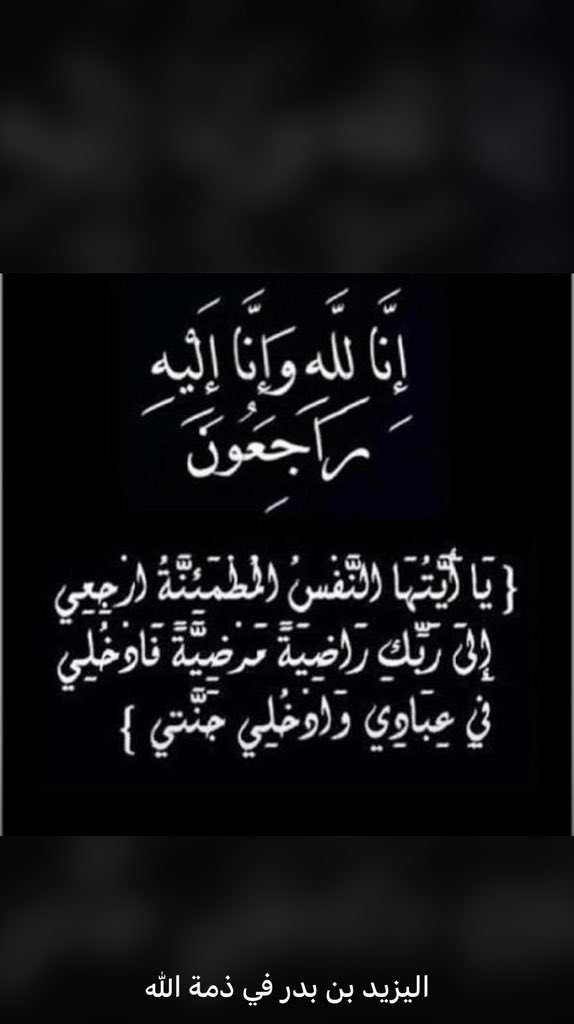 إِنَّا لِلَّهِ وَإِنَّا إِلَيْهِ
رَاجَعُونَ
{ يَا أَيَّتُهَا النَّفْسُ الْمُطْمَئِنَّةُ ارْجِعِي
إِلَى رَبِّكِ رَاضِيَةً مَرْضِيَّةً فَادْخُلِي
فِي عِبَادِي وَادْخُلِي جَنَّتِي }
اليزيد بن بدر في ذمة الله